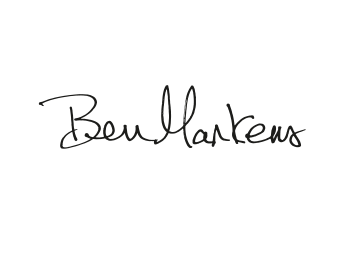 Ben Markens